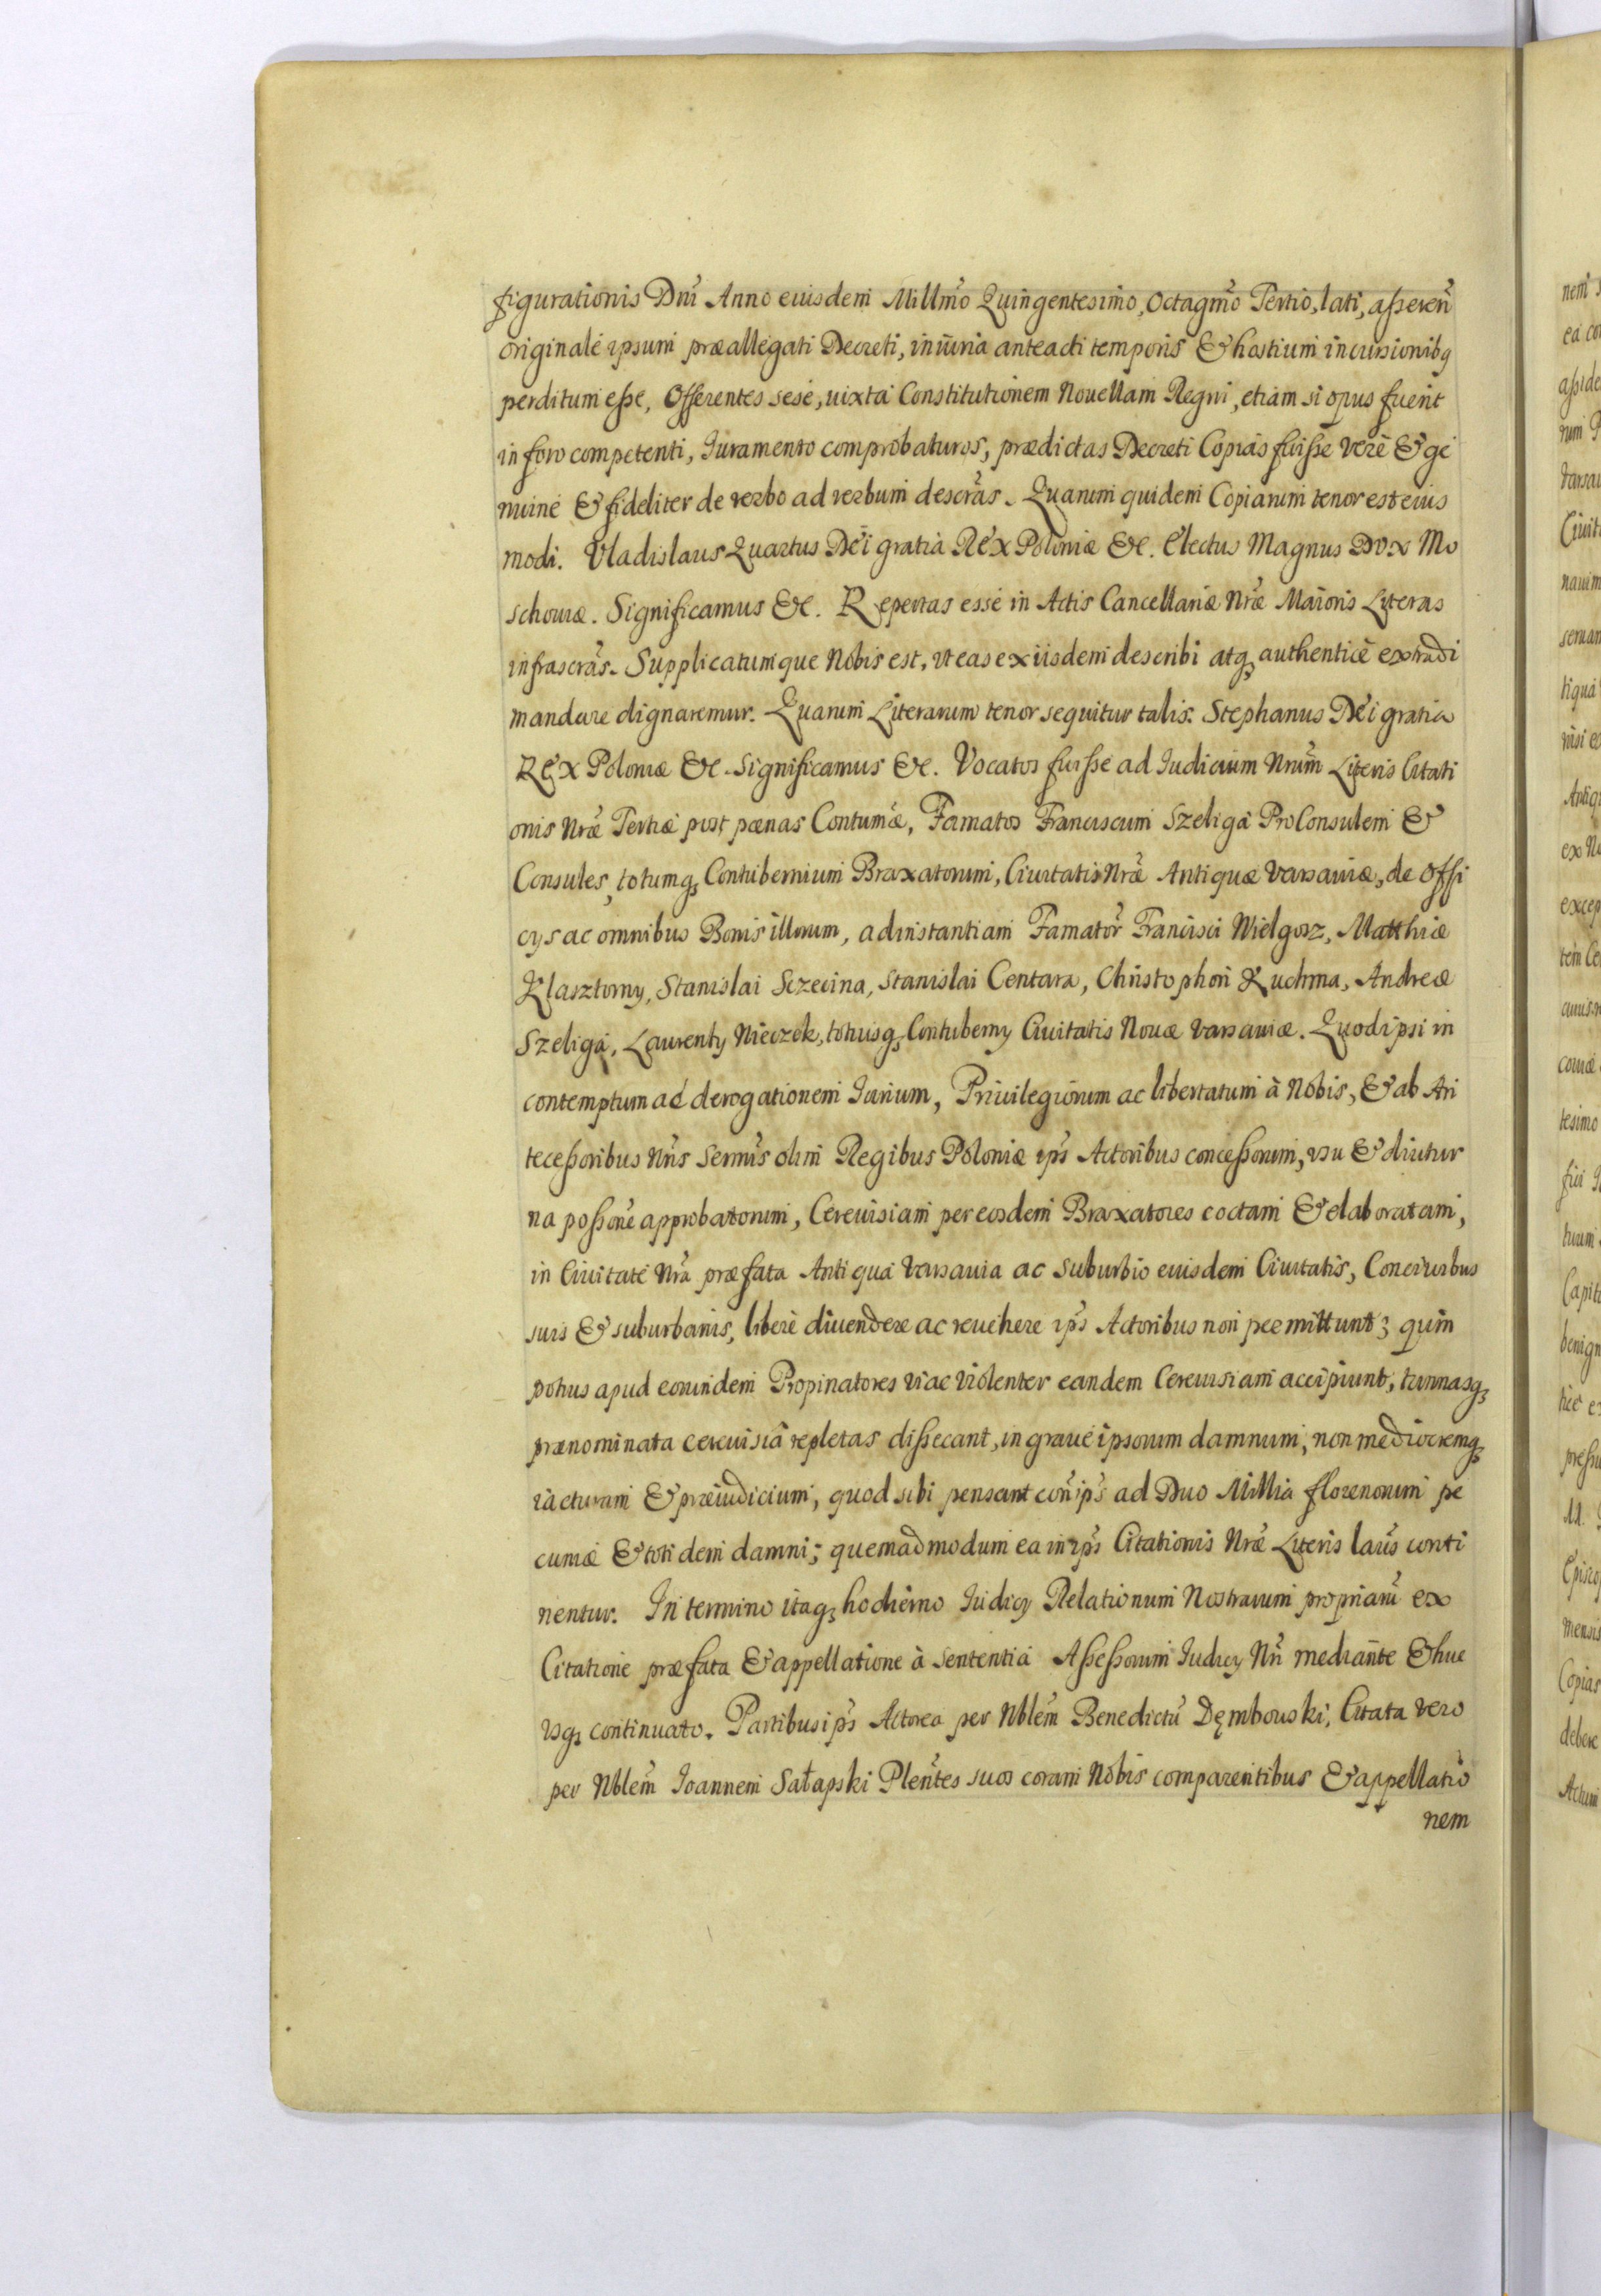 figurationis Dnĩ Anno eiusdem Millmõ Quingentesimo, Octagmõ Tertio, lati, asseren̄
originale ipsum præallegati Decreti, iniuria anteacti temporis & hostium incursionibq
perditum esse, Offerentes sese, iuxta Constitutionem Nouellam Regni, etiam si opus fuerit
in foro competenti, Iuramento comprobaturos, prædictas Decreti Copias fuisse verè & ge
nuine & fideliter de verbo ad verbum descrãs. Quarum quidem Copiarum tenor est eius
modi. Vladislaus Quartus Dei gratia Rex Poloniæ &c. Electus Magnus Dux Mo
schouiæ. Significamus &c. Repertas esse in Actis Cancellariæ Nræ Maioris Literas
infrascrãs. Supplicatumque Nobis est, vt eas ex iisdem describi atq3 authenticè extradi
mandare dignaremur. Quarum Literarum tenor sequitur talis. Stephanus Dei gratia
Rex Poloniæ &c. Significamus &c. Vocatos fuisse ad Iudicium Nrũm Literis Citati
onis Nræ Tertiæ post pænas Contumæ, Famatos Franciscum Szeliga ProConsulem &
Consules, totumq3 Contubernium Braxatorum, Ciuitatis Nræ Antiquæ Varsauiæ, de Offi
cys ac omnibus Bonis illorum, ad instantiam Famator̃ Francisci Wielgosz, Matthiæ
Klasztorny, Stanislai Sczecina, Stanislai Centara, Christophori Kuchma, Andreæ
Szeliga, Laurenty Nieczek, totiusq3 Contuberny Ciuitatis Nouæ Varsauiæ. Quod ipsi in
contemptum ac derogationem Iurium, Priuilegiorum ac libertatum à Nobis, & ab An
tecessoribus Nr̃is Sermĩs olim Regibus Poloniæ ip̃s Actoribus concessorum, vsu & diutur
na possone approbatorum, Cereuisiam per eosdem Braxatores coctam & elaboratam,
in Ciuitate Nr̃a præfata Antiqua Varsauia ac Suburbio eiusdem Ciuitatis, Conciuibus
suis & suburbanis, liberè diuendere ac reuehere ip̃s Actoribus non peemittunt; quim
potius apud eorundem Propinatores vi ac violenter eandem Cereuisiam accipiunt, tunnasq3
prænominata cereuisiâ repletas dissecant, in graue ipsorum damnum, non mediocremq3
iacturam & præiudicium, quod sibi pensant con̄ ip̃s ad Duo Millia florenorum pe
cuniæ & totidem damni; quemadmodum ea in ip̃s Citationis Nræ Literis latiũs conti
nentur. In termino itaq3 hodierno Iudicy Relationum Nostrarum propriarũ ex
Citatione præfata & appellatione à Sententia Assessorum Iudicy Nr̃i mediañte & huc
vsq3 continuato. Partibus ip̃s Actorea per Nblẽm Benedictũ Dębowski, Citata vero
per Nblẽm Ioannem Sałapski Pleñtes suos coram Nobis comparentibus & appellatio
nem